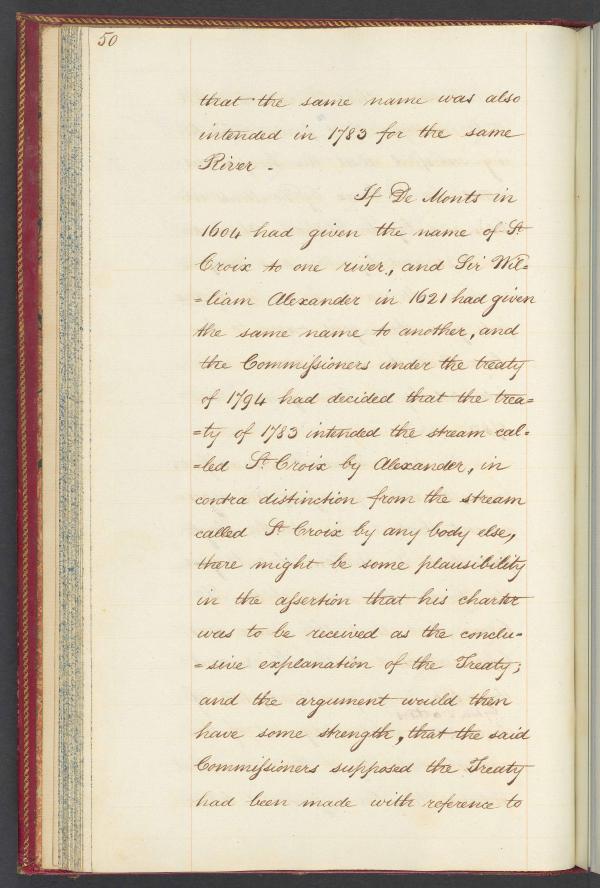 50
that the same name was also
intended in 1783 for the same
River -
If De Monts in
1604 had given the name of St
Croix to one river, and Sir Wil=
=liam Alexander in 1621 had given
the same name to another, and
the Commiſsioners under the treaty
of 1794 had decided that the trea=
=ty of 1783 intended the stream cal=
=led St Croix by Alexander, in
contra distinction from the stream
called St Croix by any body else,
there might be some plausibility
in the aſsertion that his charter
was to be received as the conclu=
=sive explanation of the Treaty;
and the argument would then
have some strength, that the said
Commiſsioners supposed the Treaty
had been made with reference to